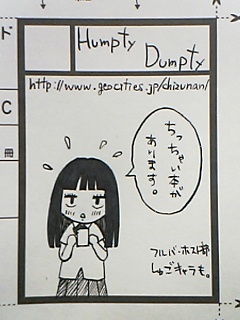 ド
C
冊
Humpty
Dumpty
http://www.geocities.jp/chizunan/
ちっちゃい本が
あります。
フルバ・ホスト部
しゅごキャラも。